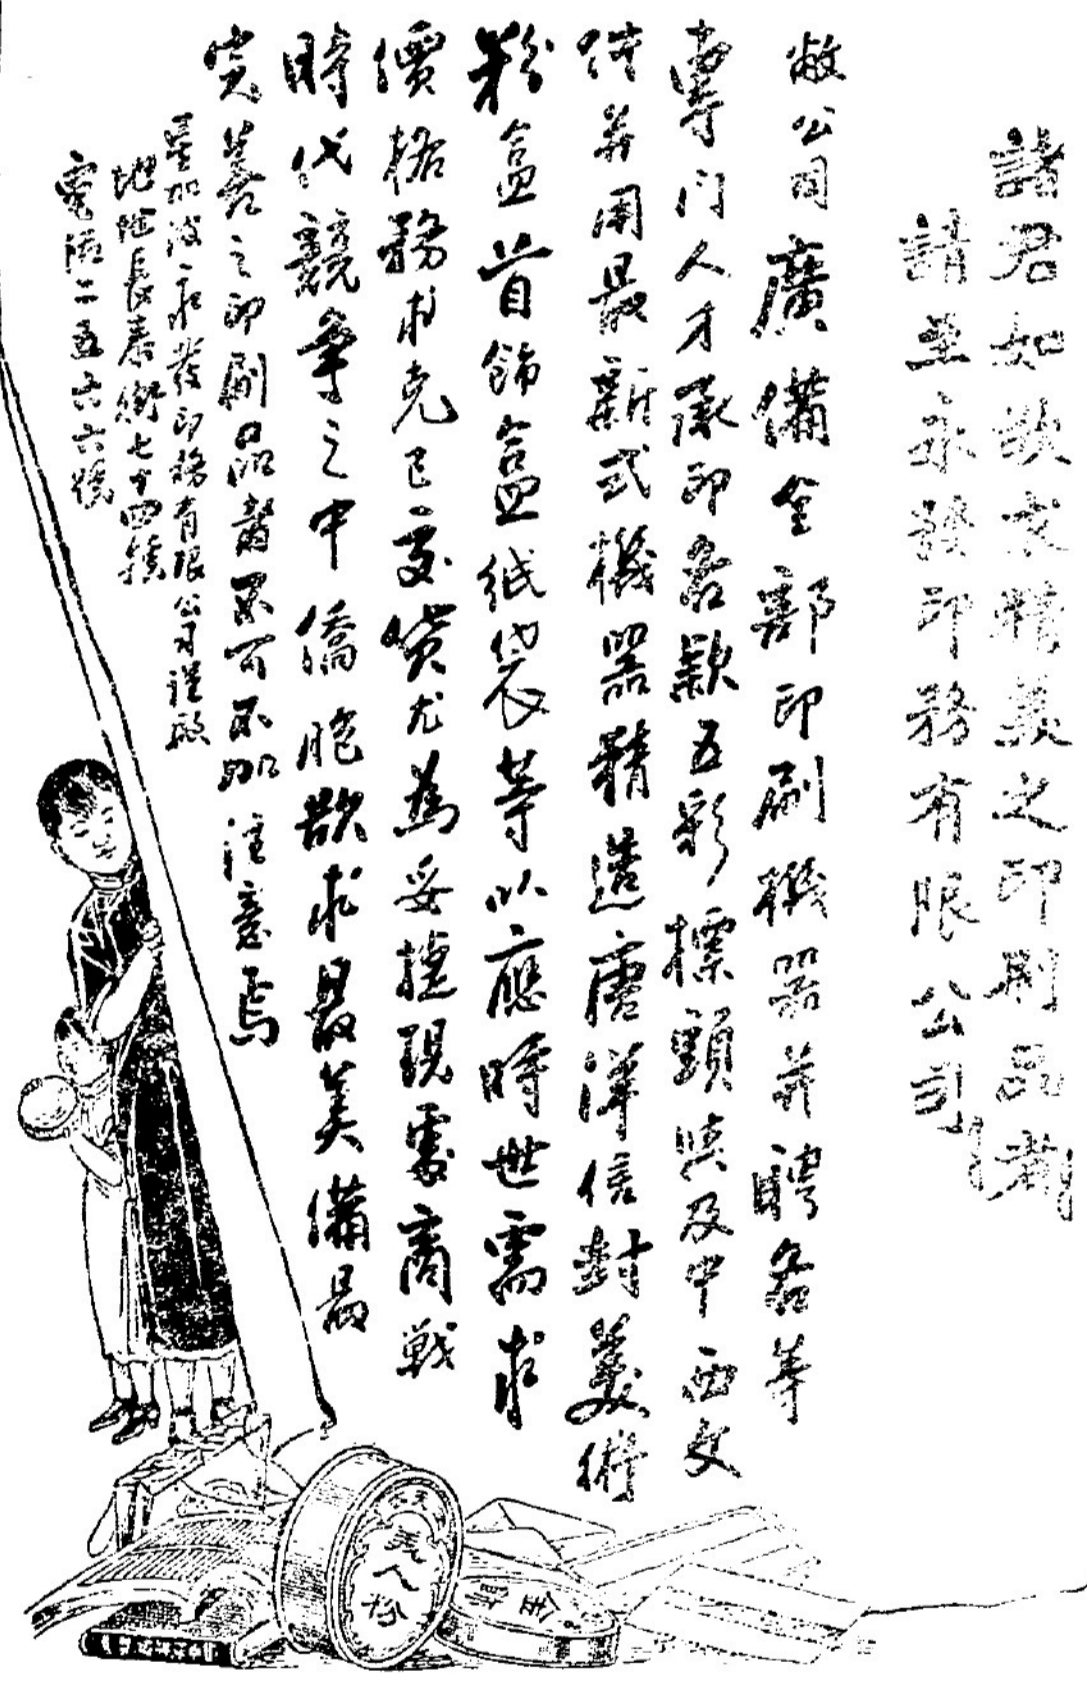 諸君如欲求精美之印刷品者
請至永發印務有限公司
敝公司廣備全部印刷機器並聘各等
專門人才承印各款五彩標頭與及中西文
件并用最新式機器精造唐洋信封美術
粉盒首飾盒紙袋等以應時世需求
價格務求克己交貨尤為妥捷現處商戰
時代競爭之中僑胞欲求最美備最
完善之印刷品者不可不加注意焉
星加坡永發印務有限公司謹啟
地址長泰街七十四號
電話二五六六號
美人粉